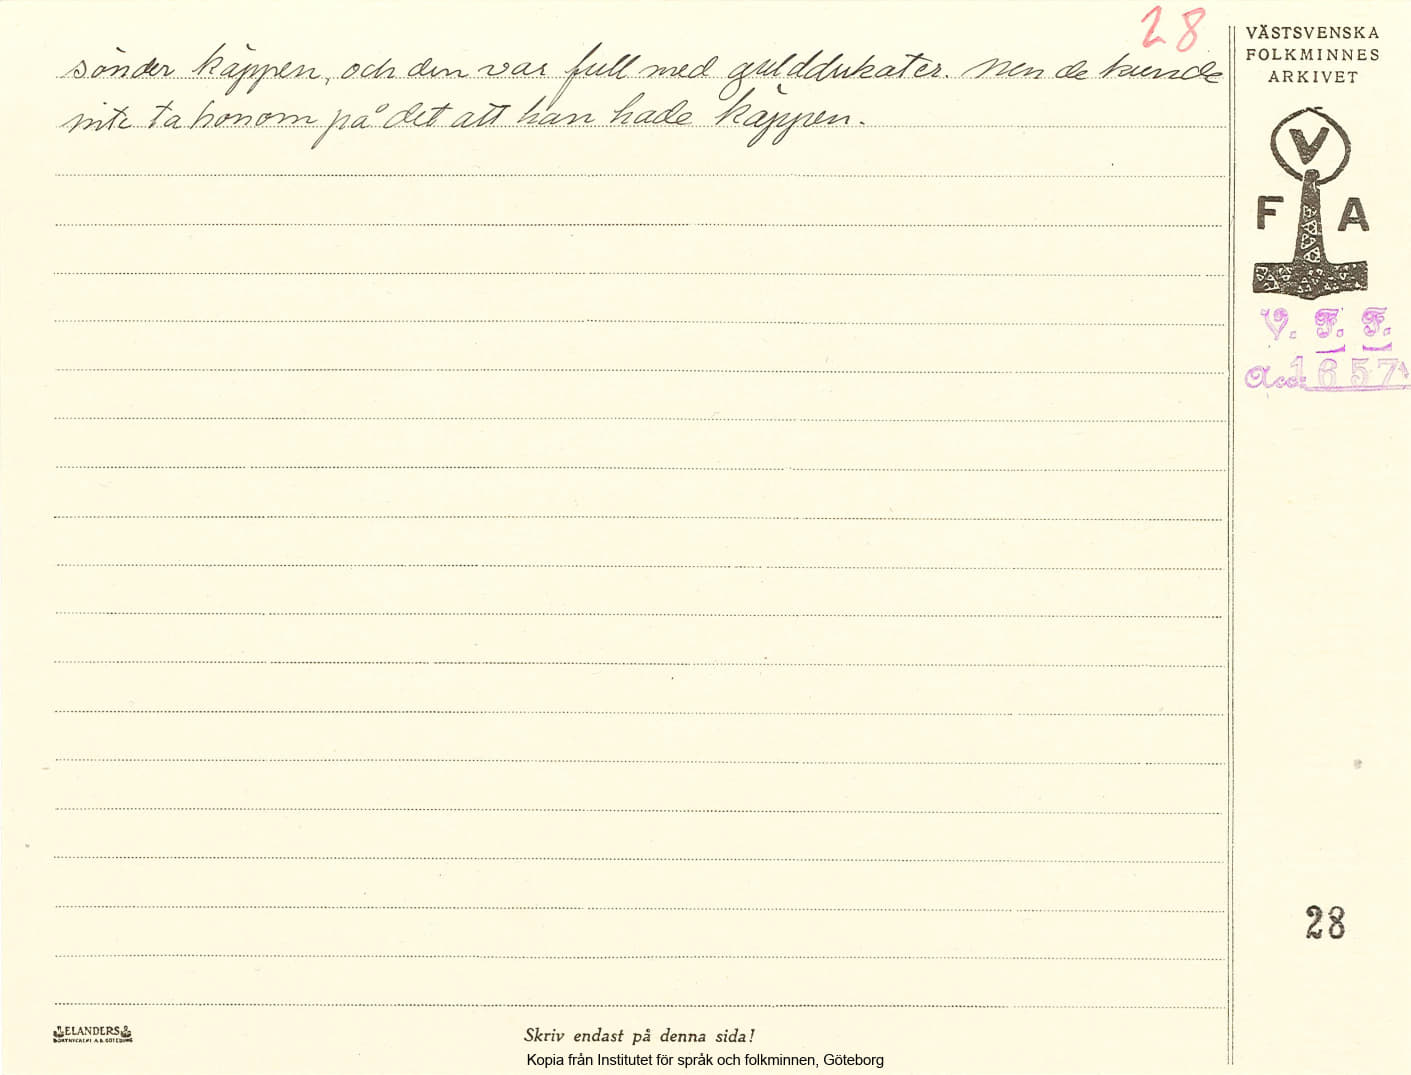 28
sönder käppen, och den var full med gulddukater. Men de kunde
inte ta honom på det att han hade käppen.
VÄSTSVENSKA
FOLKMINNES
ARKIVET
V
F A
V. F. F.
Acc. 1657
28
ELANDERS
BOKTRYCKERI A.B. GÖTEBORG
Skriv endast på denna sida!
Kopia från Institutet för språk och folkminnen, Göteborg